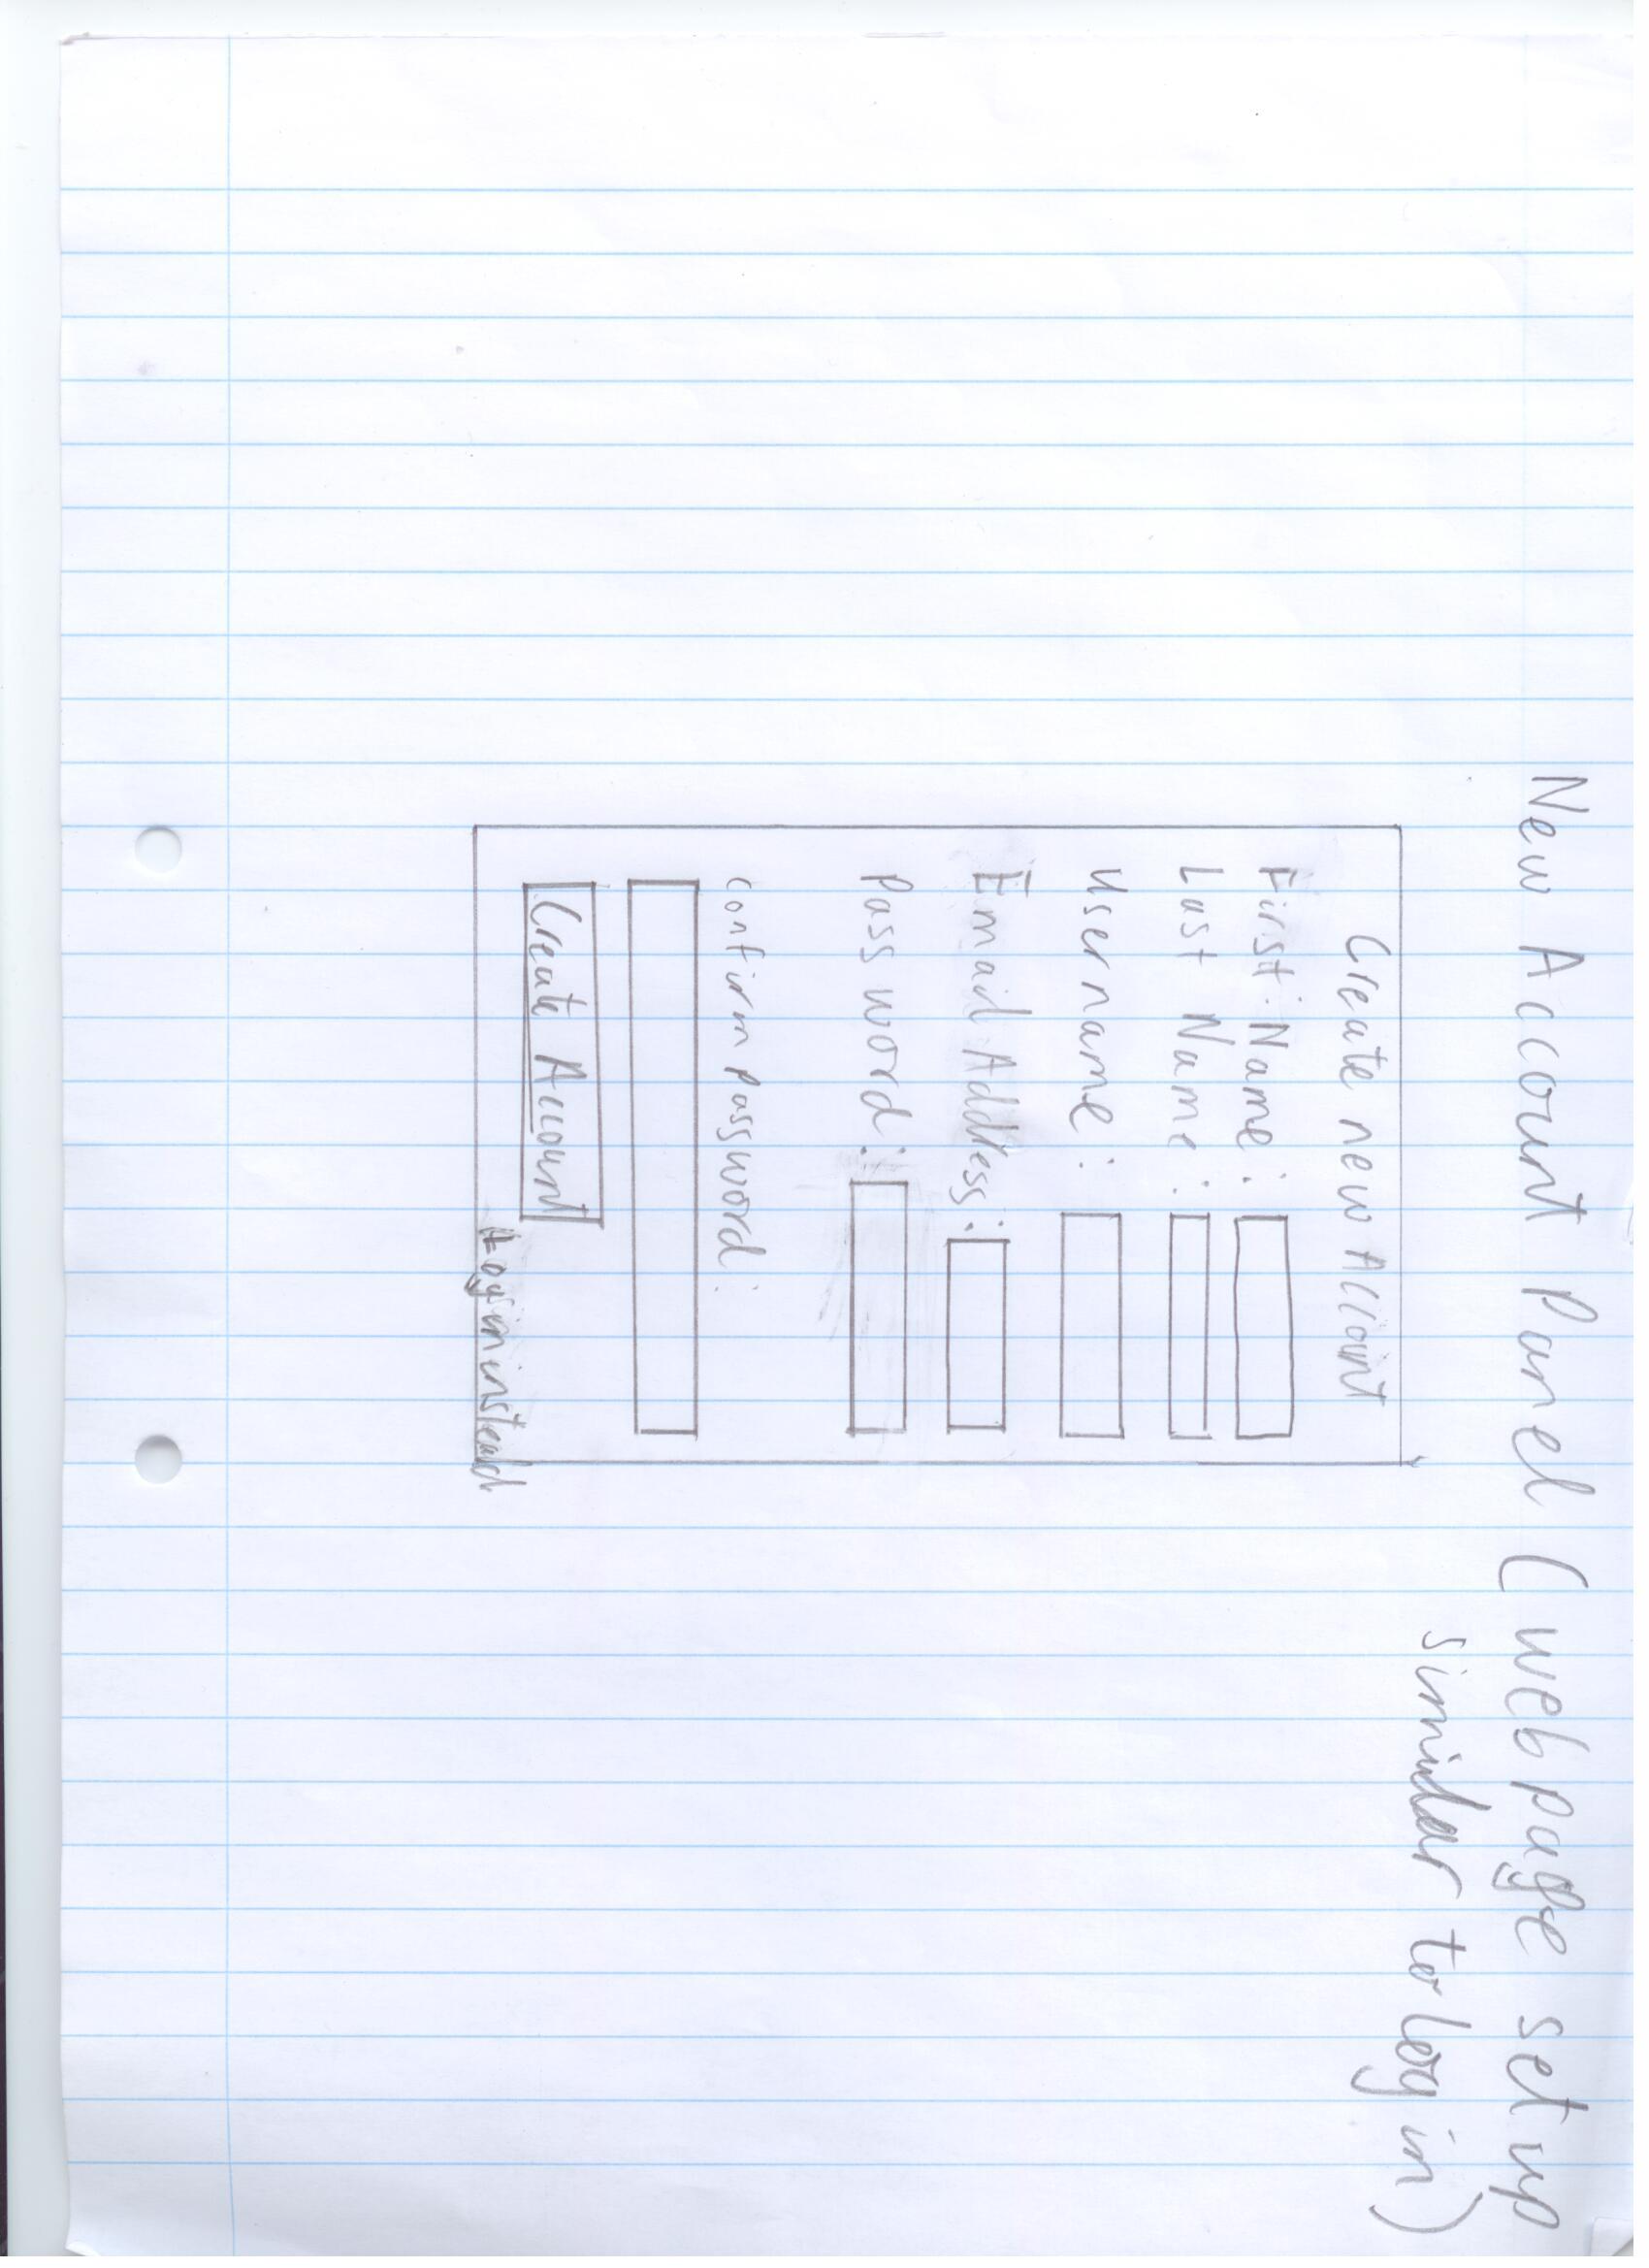 New Account Panel (webpage set up
similar to log in)
Create new Account
First Name:
Last Name:
Username:
Email Address:
Password:
confirm password:
Create Account
Log in instead